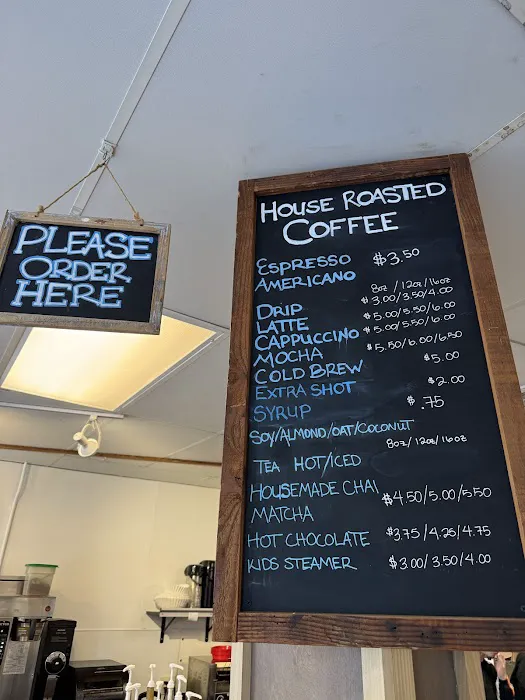 PLEASE
ORDER
HERE
HOUSE ROASTED
COFFEE
ESPRESSO $3.50
AMERICANO
8oz / 12oz / 16oz
DRIP $3.00/3.50/4.00
LATTE $5.00/5.50/6.00
CAPPUCCINO $5.00/5.50/6.00
MOCHA $5.50/6.00/6.50
COLD BREW $5.00
EXTRA SHOT $2.00
SYRUP $.75
SOY/ALMOND/OAT/COCONUT
8oz/12oz/16oz
TEA HOT/ICED
HOUSEMADE CHAI $4.50/5.00/5.50
MATCHA
HOT CHOCOLATE $3.75/4.25/4.75
KIDS STEAMER $3.00/3.50/4.00